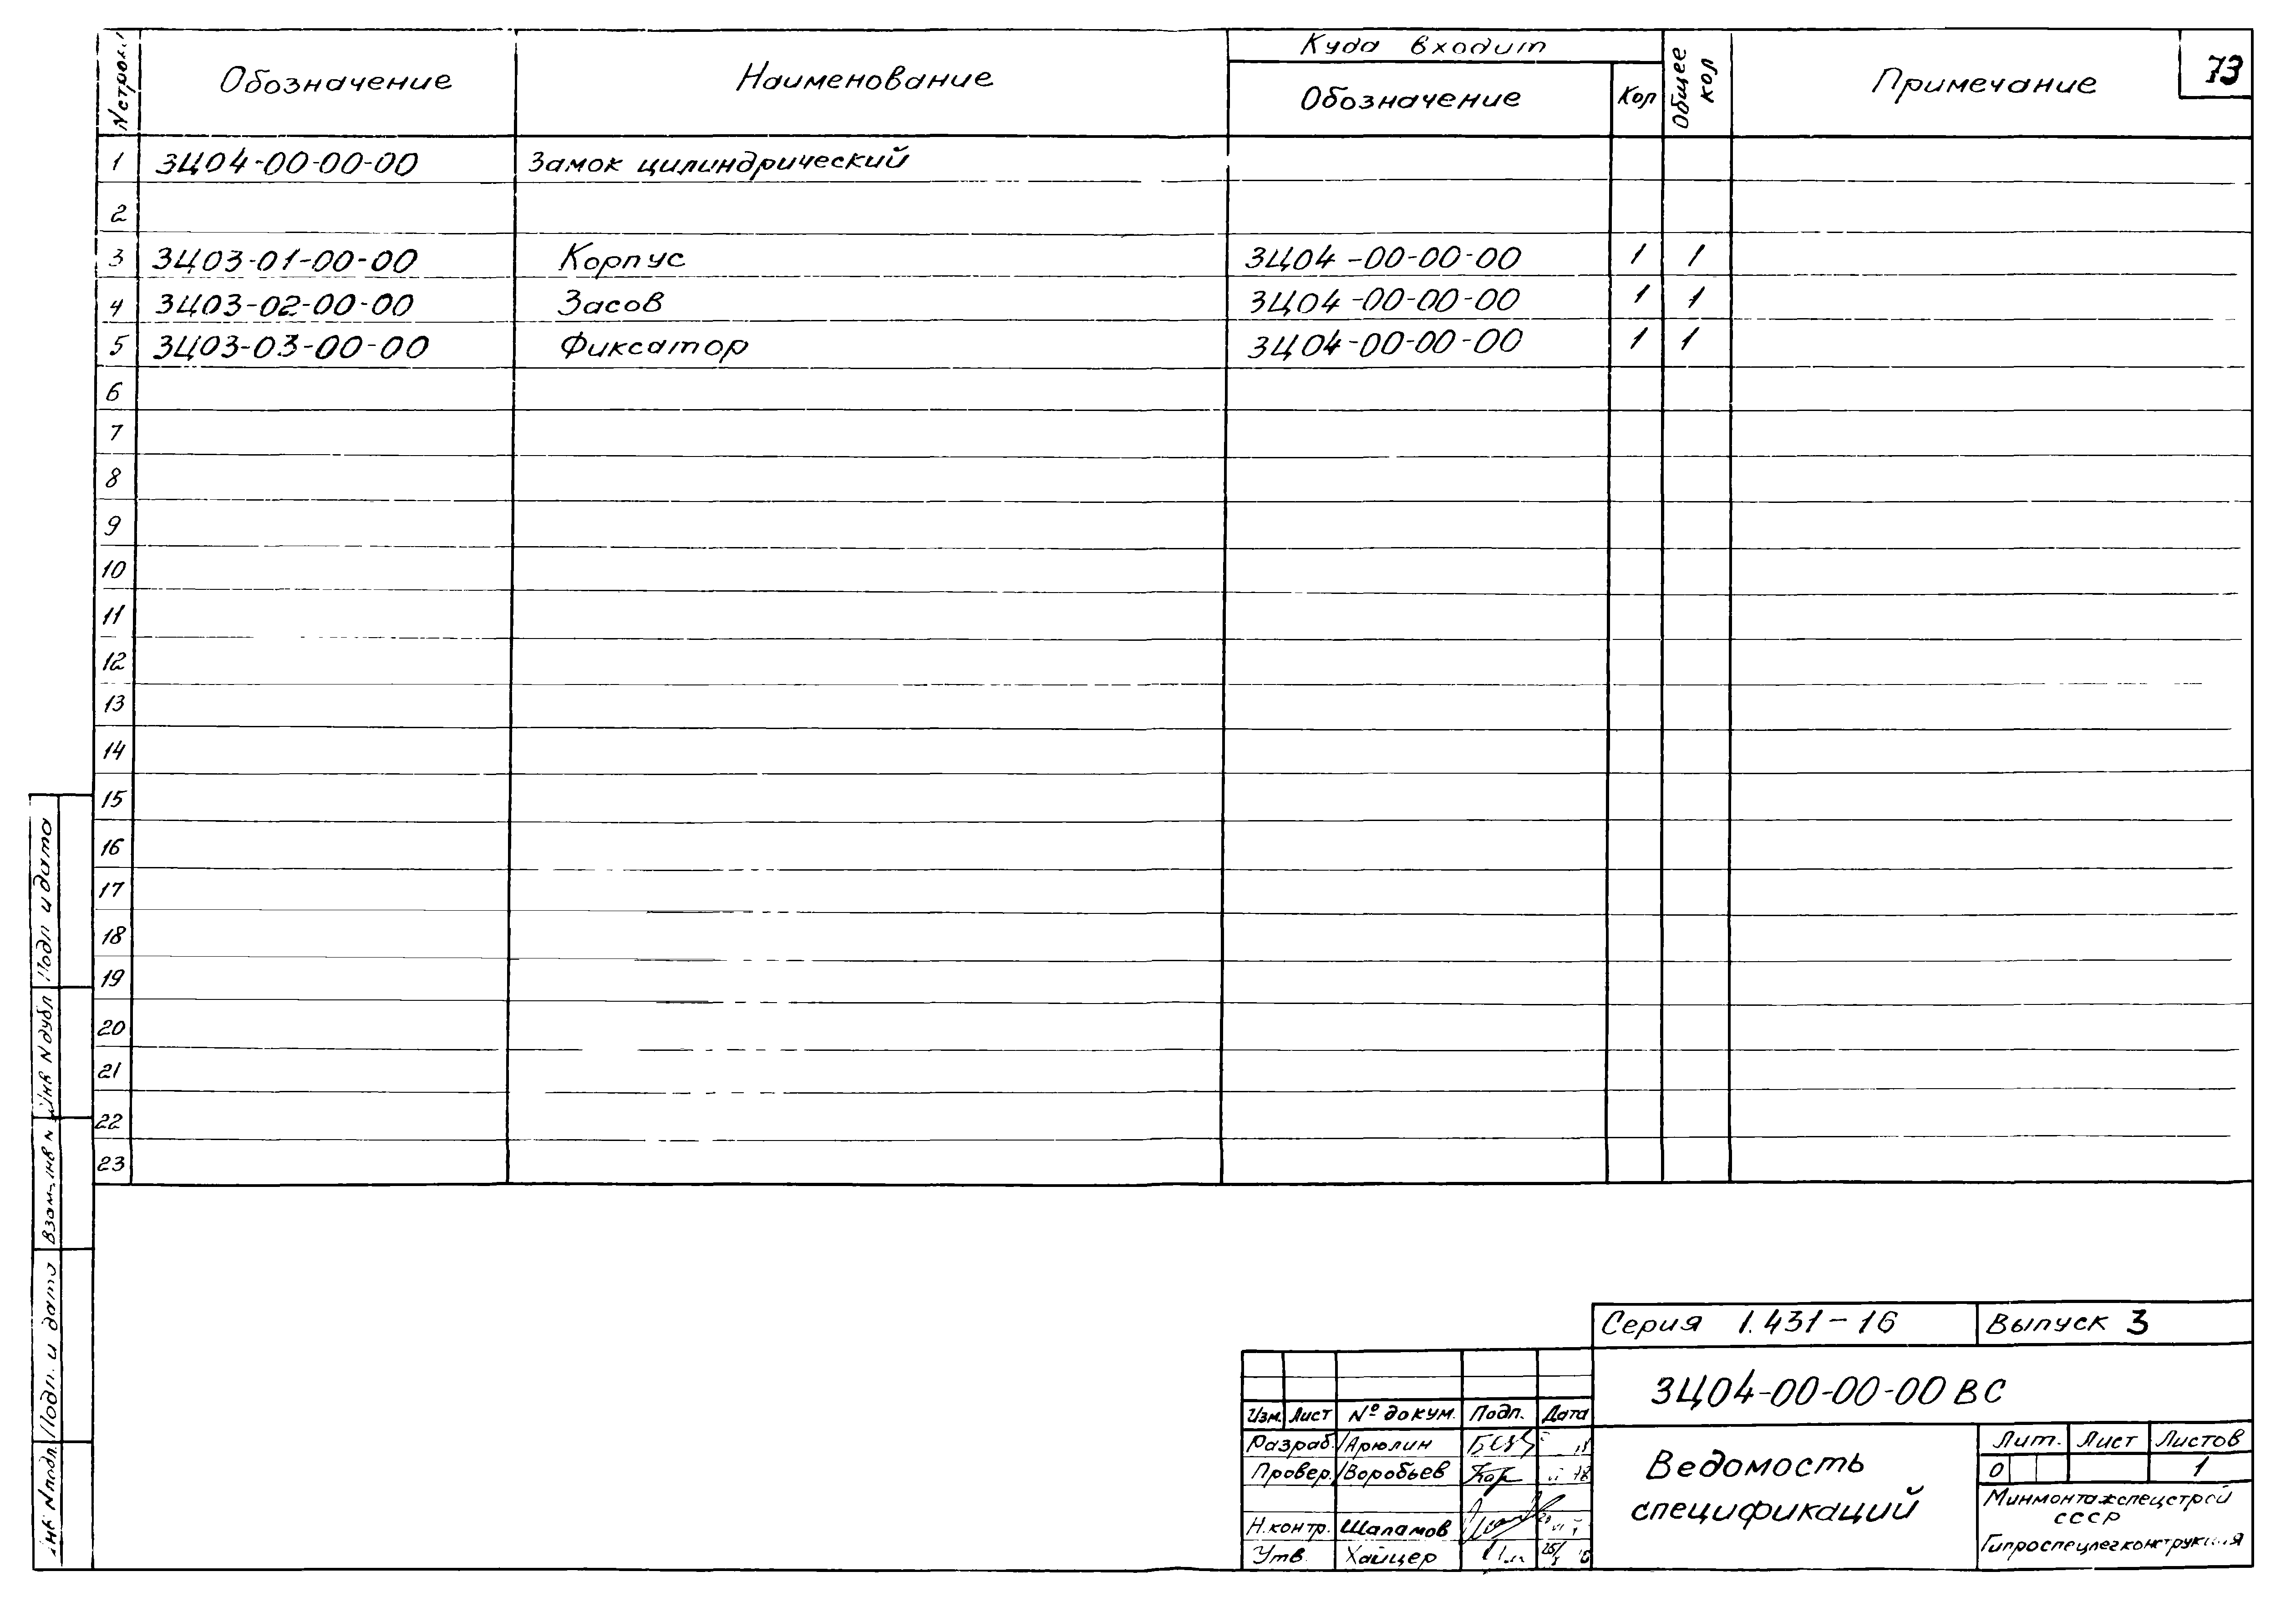 73
N строки Обозначение Наименование Куда входит Общее кол Примечание
Обозначение Кол
1 ЗЦ04-00-00-00 Замок цилиндрический
2
3 ЗЦ03-01-00-00 Корпус ЗЦ04-00-00-00 1 1
4 ЗЦ03-02-00-00 Засов ЗЦ04-00-00-00 1 1
5 ЗЦ03-03-00-00 Фиксатор ЗЦ04-00-00-00 1 1
6
7
8
9
10
11
12
13
14
15
16
17
18
19
20
21
22
23
Подп и дата
Инв N дубл
Взам. инв N
Подп. и дата
Инв N подл.
Серия 1.431-16 Выпуск 3
ЗЦ04-00-00-00 ВС
Изм. Лист № докум. Подп. Дата
Разраб. Арюлин
Провер. Воробьев
Н.контр. Шаламов
Утв. Хайцер
Ведомость
спецификаций
Лит. Лист Листов
О 1
Минмонтажспецстрой
СССР
Гипроспецлегконструкция